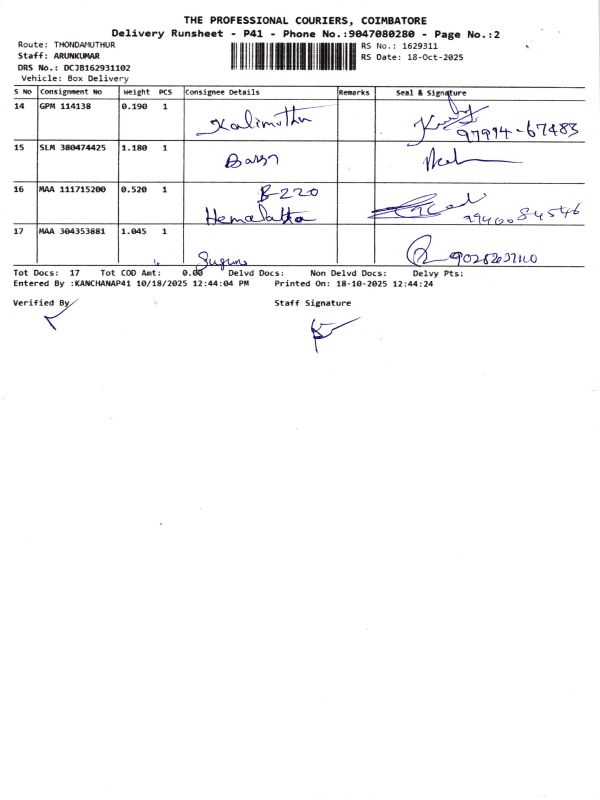 THE PROFESSIONAL COURIERS, COIMBATORE
Delivery Runsheet - P41 - Phone No.:9047080280 - Page No.:2
Route: THONDAMUTHUR
RS No.: 1629311
Staff: ARUNKUMAR
RS Date: 18-Oct-2025
DRS No.: DCJB162931102
Vehicle: Box Delivery
S No Consignment No Weight PCS Consignee Details Remarks Seal & Signature
14 GPM 114138 0.190 1 Kalimuthu
97994-67483
15 SLM 380474425 1.180 1
16 MAA 111715200 0.520 1 B-220
Hemalatha
17 MAA 304353881 1.045 1
Tot Docs: 17 Tot COD Amt: 0.00 Delvd Docs: Non Delvd Docs: Delvy Pts:
Entered By :KANCHANAP41 10/18/2025 12:44:04 PM Printed On: 18-10-2025 12:44:24
Verified By Staff Signature